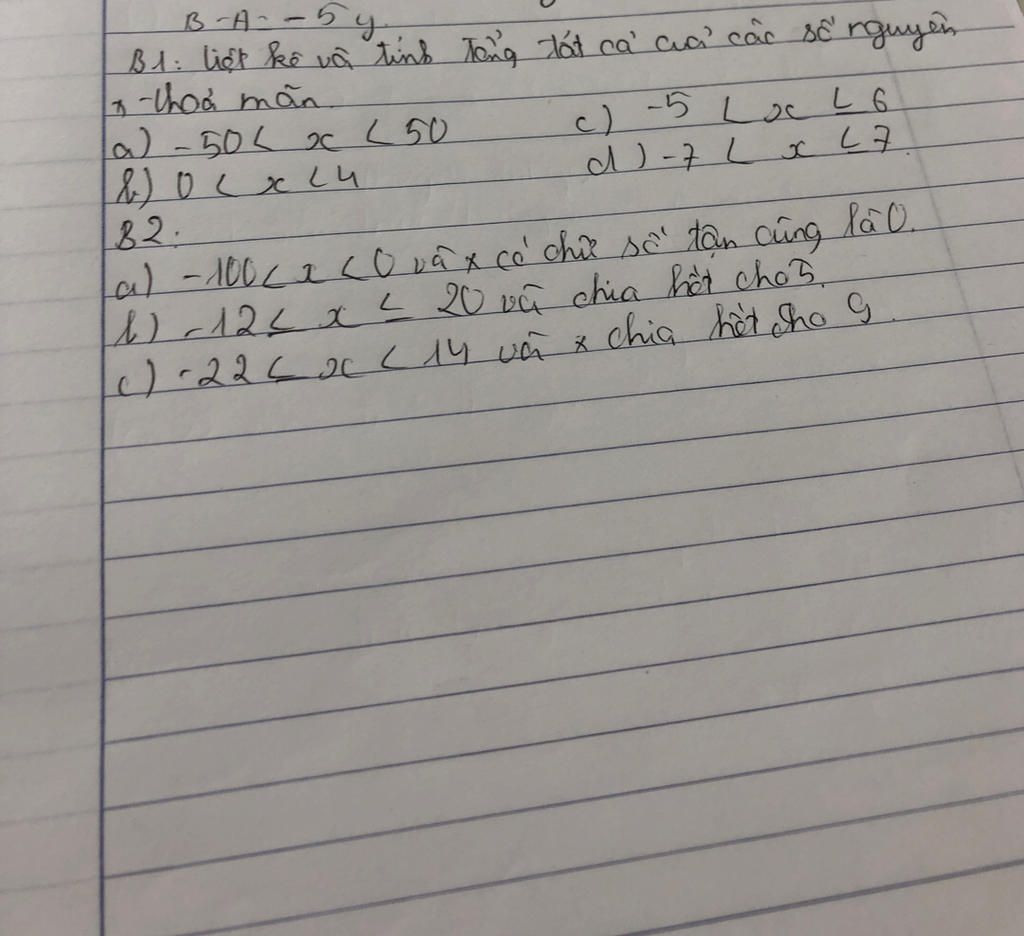 B-A = -5y
B1: liệt kê và tính tổng tất cả của các số nguyên
x thoả mãn
a) -50 < x < 50 c) -5 < x < 6
b) 0 < x < 4 d) -7 < x < 7.
B2:
a) -100 < x < 0 và x có chữ số tận cùng là 0.
b) -12 < x ≤ 20 và chia hết cho 5.
c) -22 ≤ x < 14 và x chia hết cho 9.